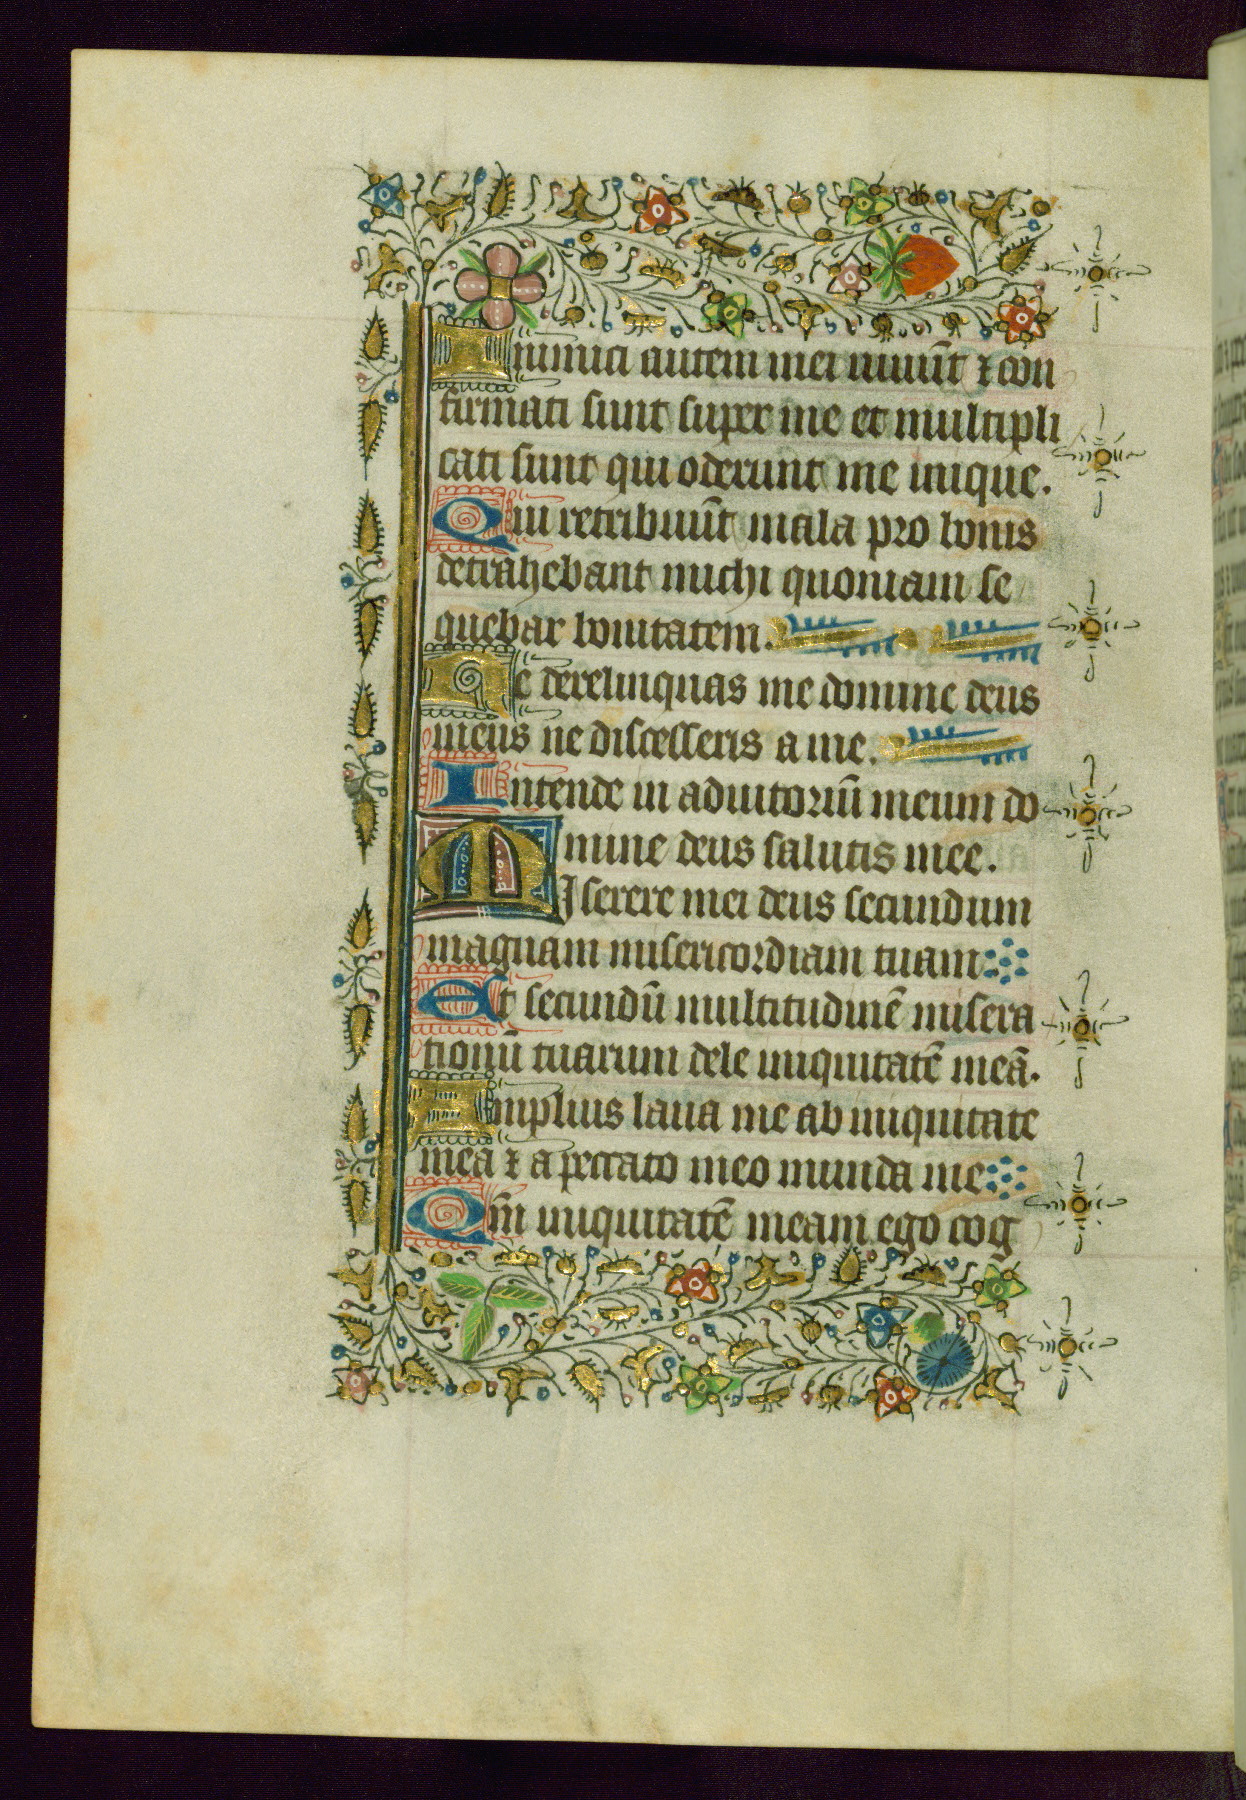 Inimici autem mei uiuūt ⁊ con
firmati sunt super me et multipli
cati sunt qui oderunt me inique.
Qui retribuūt mala pro bonis
detrahebant michi quoniam se
quebar bonitatem.
Ne derelinquas me domine deus
meus ne discesseris a me.
Intende in adiutoriū meum do
mine deus salutis mee.
Miserere mei deus secundum
magnam misericordiam tuam
Et secundū multitudinē misera
tionū tuarum dele iniquitatē meā.
Amplius laua me ab iniquitate
mea ⁊ a peccato meo munda me
Qm̄ iniquitatē meam ego cog